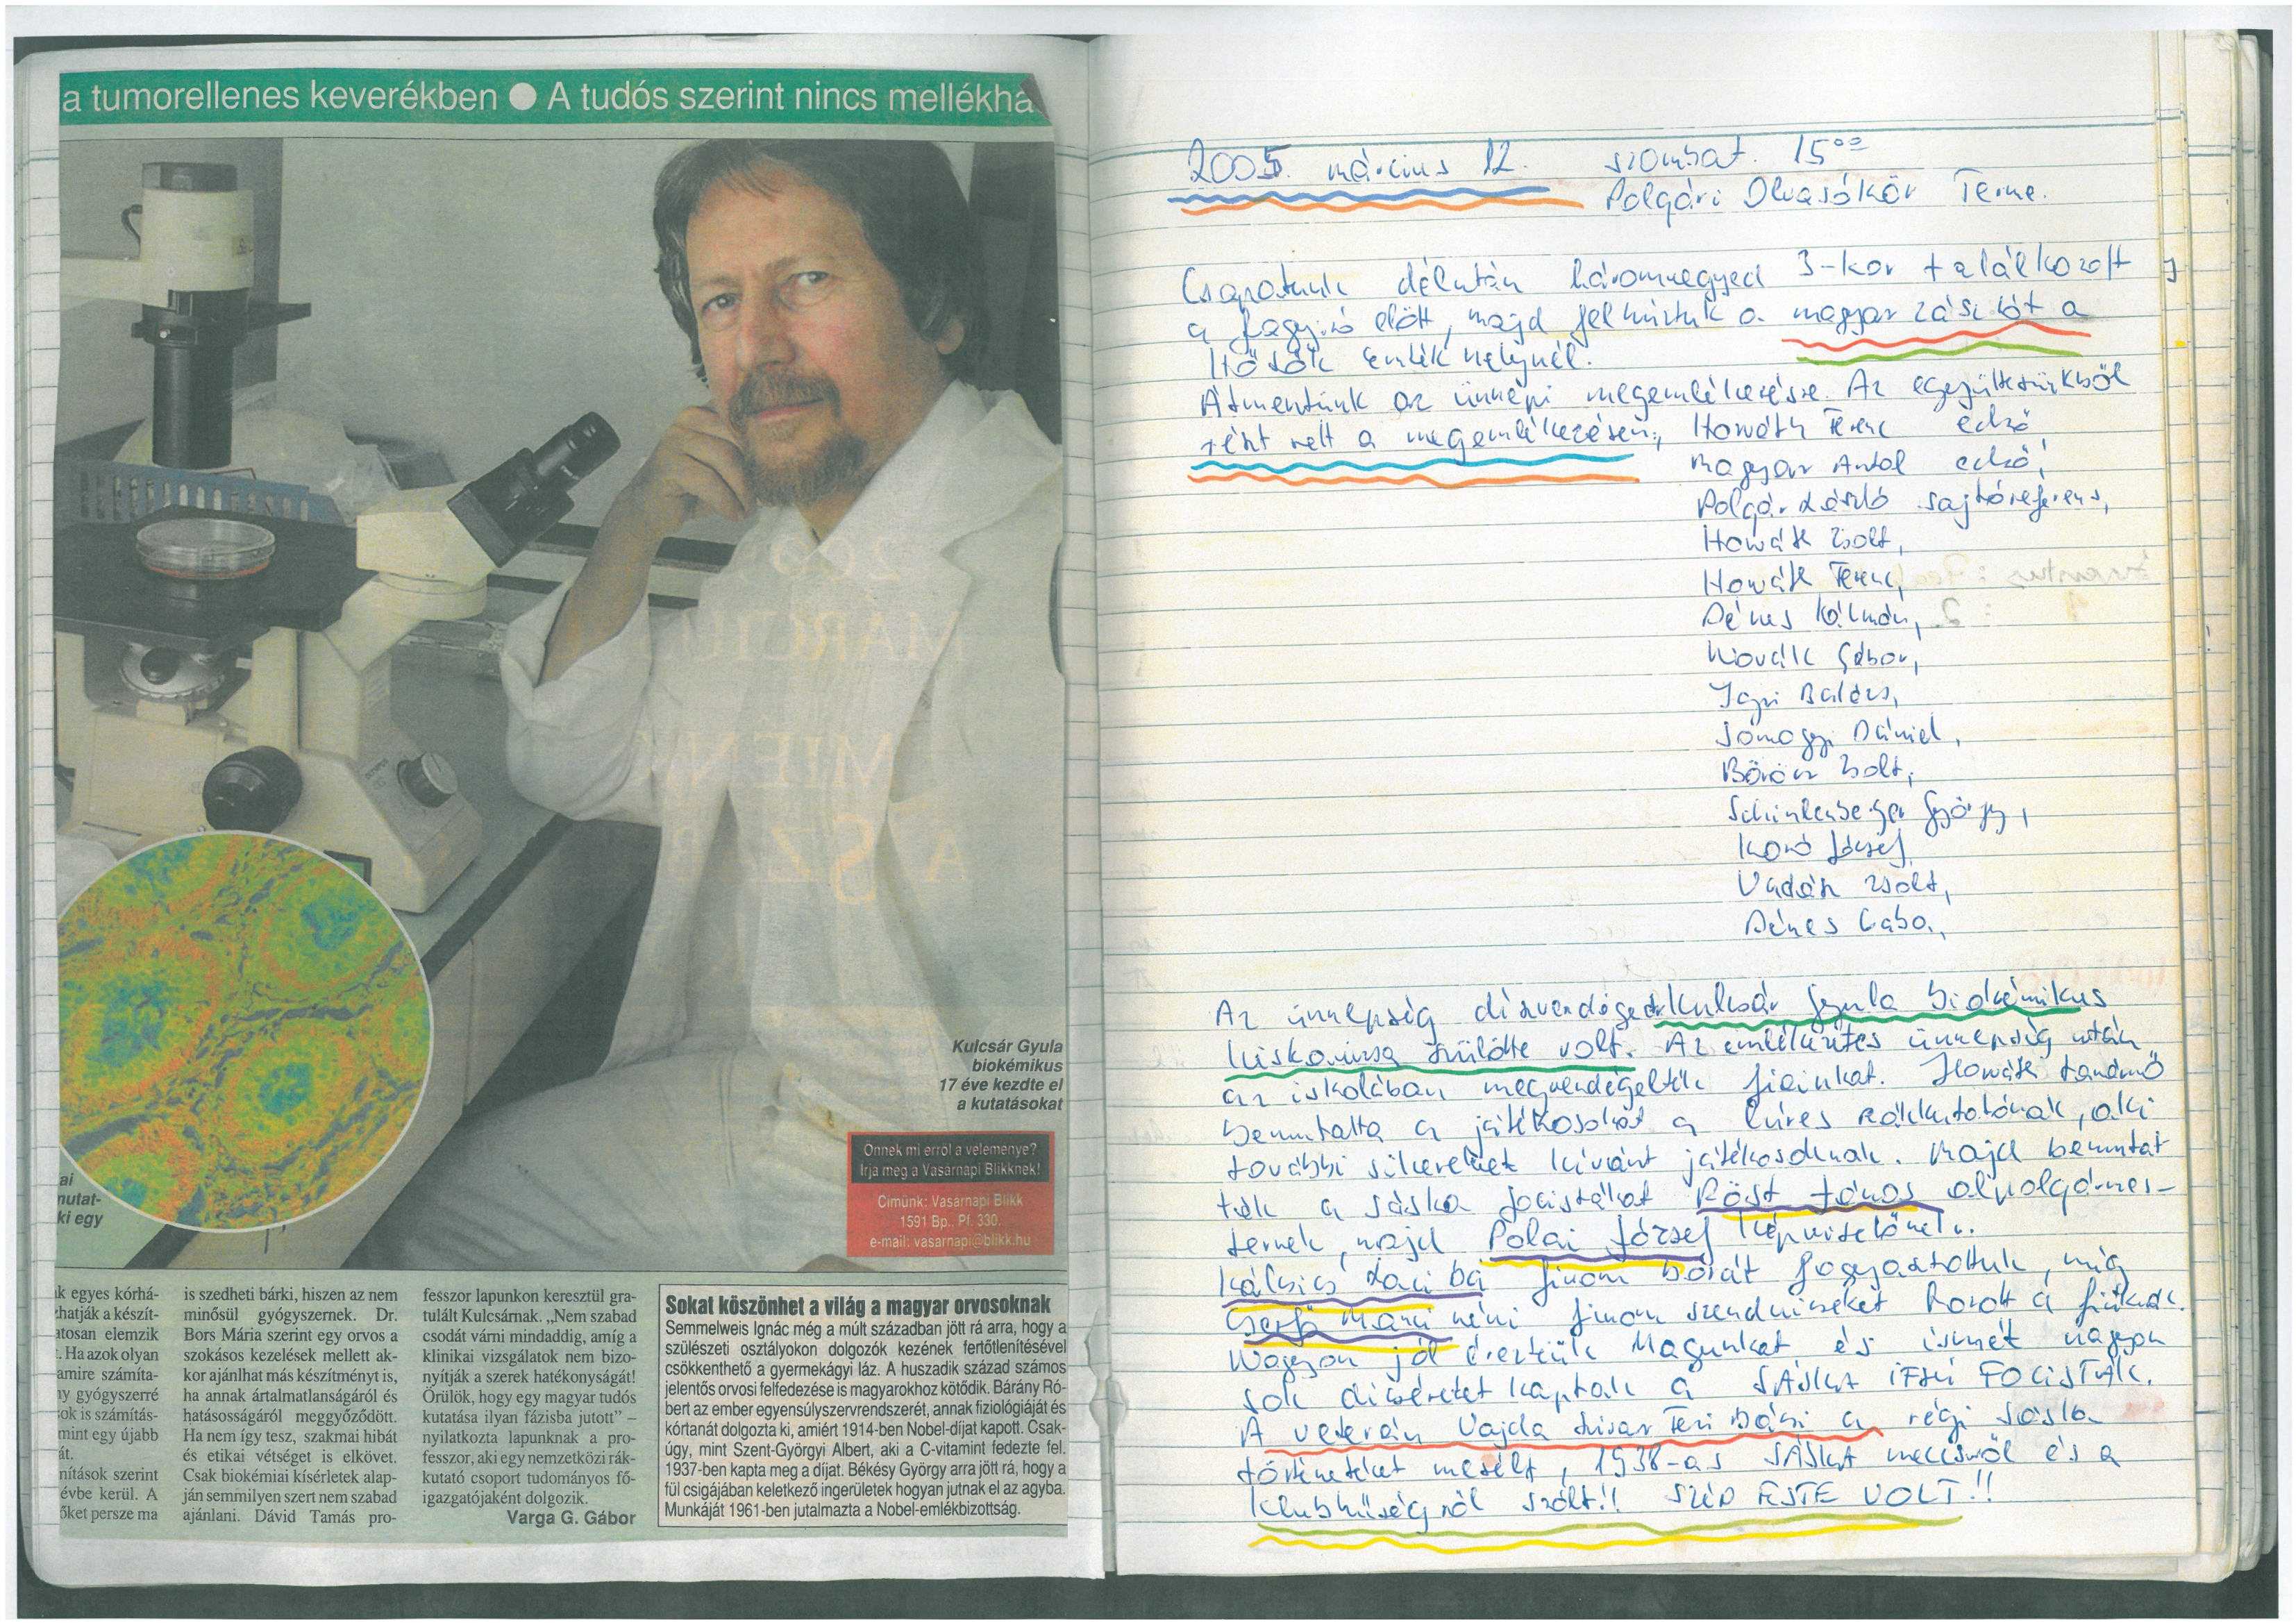 a tumorellenes keverékben ● A tudós szerint nincs mellékha
Kulcsár Gyula
biokémikus
17 éve kezdte el
a kutatásokat
Önnek mi erről a véleménye?
Írja meg a Vasárnapi Blikknek!
Címünk: Vasárnapi Blikk
1591 Bp., Pf. 330.
e-mail: vasarnapi@blikk.hu
ai
nutat-
ki egy
k egyes kórhá-
hatják a készít-
atosan elemzik
. Ha azok olyan
amire számíta-
ny gyógyszerré
ok is számítás-
mint egy újabb
át.
nítások szerint
évbe kerül. A
őket persze ma
is szedheti bárki, hiszen az nem
minősül gyógyszernek. Dr.
Bors Mária szerint egy orvos a
szokásos kezelések mellett ak-
kor ajánlhat más készítményt is,
ha annak ártalmatlanságáról és
hatásosságáról meggyőződött.
Ha nem így tesz, szakmai hibát
és etikai vétséget is elkövet.
Csak biokémiai kísérletek alap-
ján semmilyen szert nem szabad
ajánlani. Dávid Tamás pro-
fesszor lapunkon keresztül gra-
tulált Kulcsárnak. „Nem szabad
csodát várni mindaddig, amíg a
klinikai vizsgálatok nem bizo-
nyítják a szerek hatékonyságát!
Örülök, hogy egy magyar tudós
kutatása ilyan fázisba jutott" –
nyilatkozta lapunknak a pro-
fesszor, aki egy nemzetközi rák-
kutató csoport tudományos fő-
igazgatójaként dolgozik.
Varga G. Gábor
Sokat köszönhet a világ a magyar orvosoknak
Semmelweis Ignác még a múlt században jött rá arra, hogy a
szülészeti osztályokon dolgozók kezének fertőtlenítésével
csökkenthető a gyermekágyi láz. A huszadik század számos
jelentős orvosi felfedezése is magyarokhoz kötődik. Bárány Ró-
bert az ember egyensúlyszervrendszerét, annak fiziológiáját és
kórtanát dolgozta ki, amiért 1914-ben Nobel-díjat kapott. Csak-
úgy, mint Szent-Györgyi Albert, aki a C-vitamint fedezte fel.
1937-ben kapta meg a díjat. Békésy György arra jött rá, hogy a
fül csigájában keletkező ingerületek hogyan jutnak el az agyba.
Munkáját 1961-ben jutalmazta a Nobel-emlékbizottság.
2005. március 12. szombat. 15⁰⁰
Polgári Olvasókör Terme.
Csapatunk délután háromnegyed 3-kor találkozott
a fagyizó előtt, majd felhúztuk a magyar zászlót a
Hősök emlékhelynél.
Átmentünk az ünnepi megemlékezésre. Az együttesünkből
részt vett a megemlékezésen; Horváth Ferenc edző
Magyar Antal edző,
Polgár László sajtóreferens,
Horváth Zsolt,
Horváth Ferenc,
Dénes Kálmán,
Novák Gábor,
Jagri Balázs,
Somogyi Dániel,
Böröcz Zsolt,
György,
Koró József,
Vadán Zsolt,
Dénes Gábor,
Az ünnepség díszvendége Kulcsár Gyula biokémikus
szülötte volt. Az emlékűztes ünnepség után
az iskolában megvendégelték fiainkat. Horváth
bemutatta a játékosokat a híres rákkutatónak, aki
további sikereket kívánt játékosoknak. Majd bemutat
ták a sáska focistákat Röst János alpolgármes-
ternek, majd Polai József képviselőnek.
Kálcics Laci bá finom borát fogyasztottuk, míg
Cserfő Mari néni finom szendvicseket hozott a fiúknak.
Nagyon jól éreztük magunkat és ismét nagyon
sok dicséretet kaptak a SÁSKA IFJÚ FOCISTÁK.
A veterán Vajda Feri bácsi a régi Sáska
történeteket mesélt, 1938-as SÁSKA meccsről és a
klubhűségről szólt!! SZÉP ESTE VOLT!!